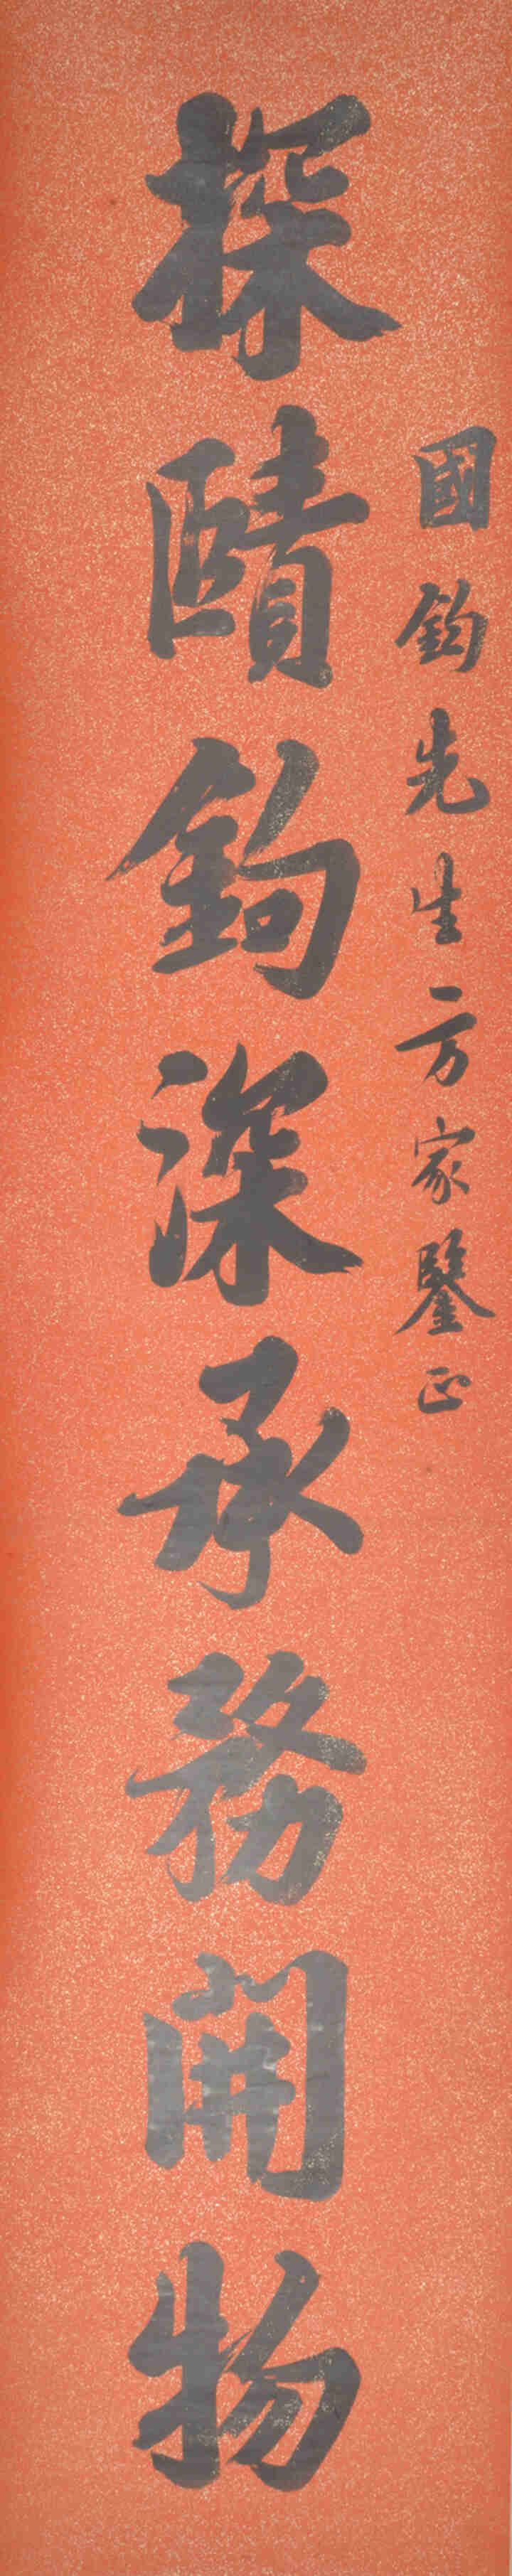 國鈞先生方家鑒正
探賾鉤深承務開物